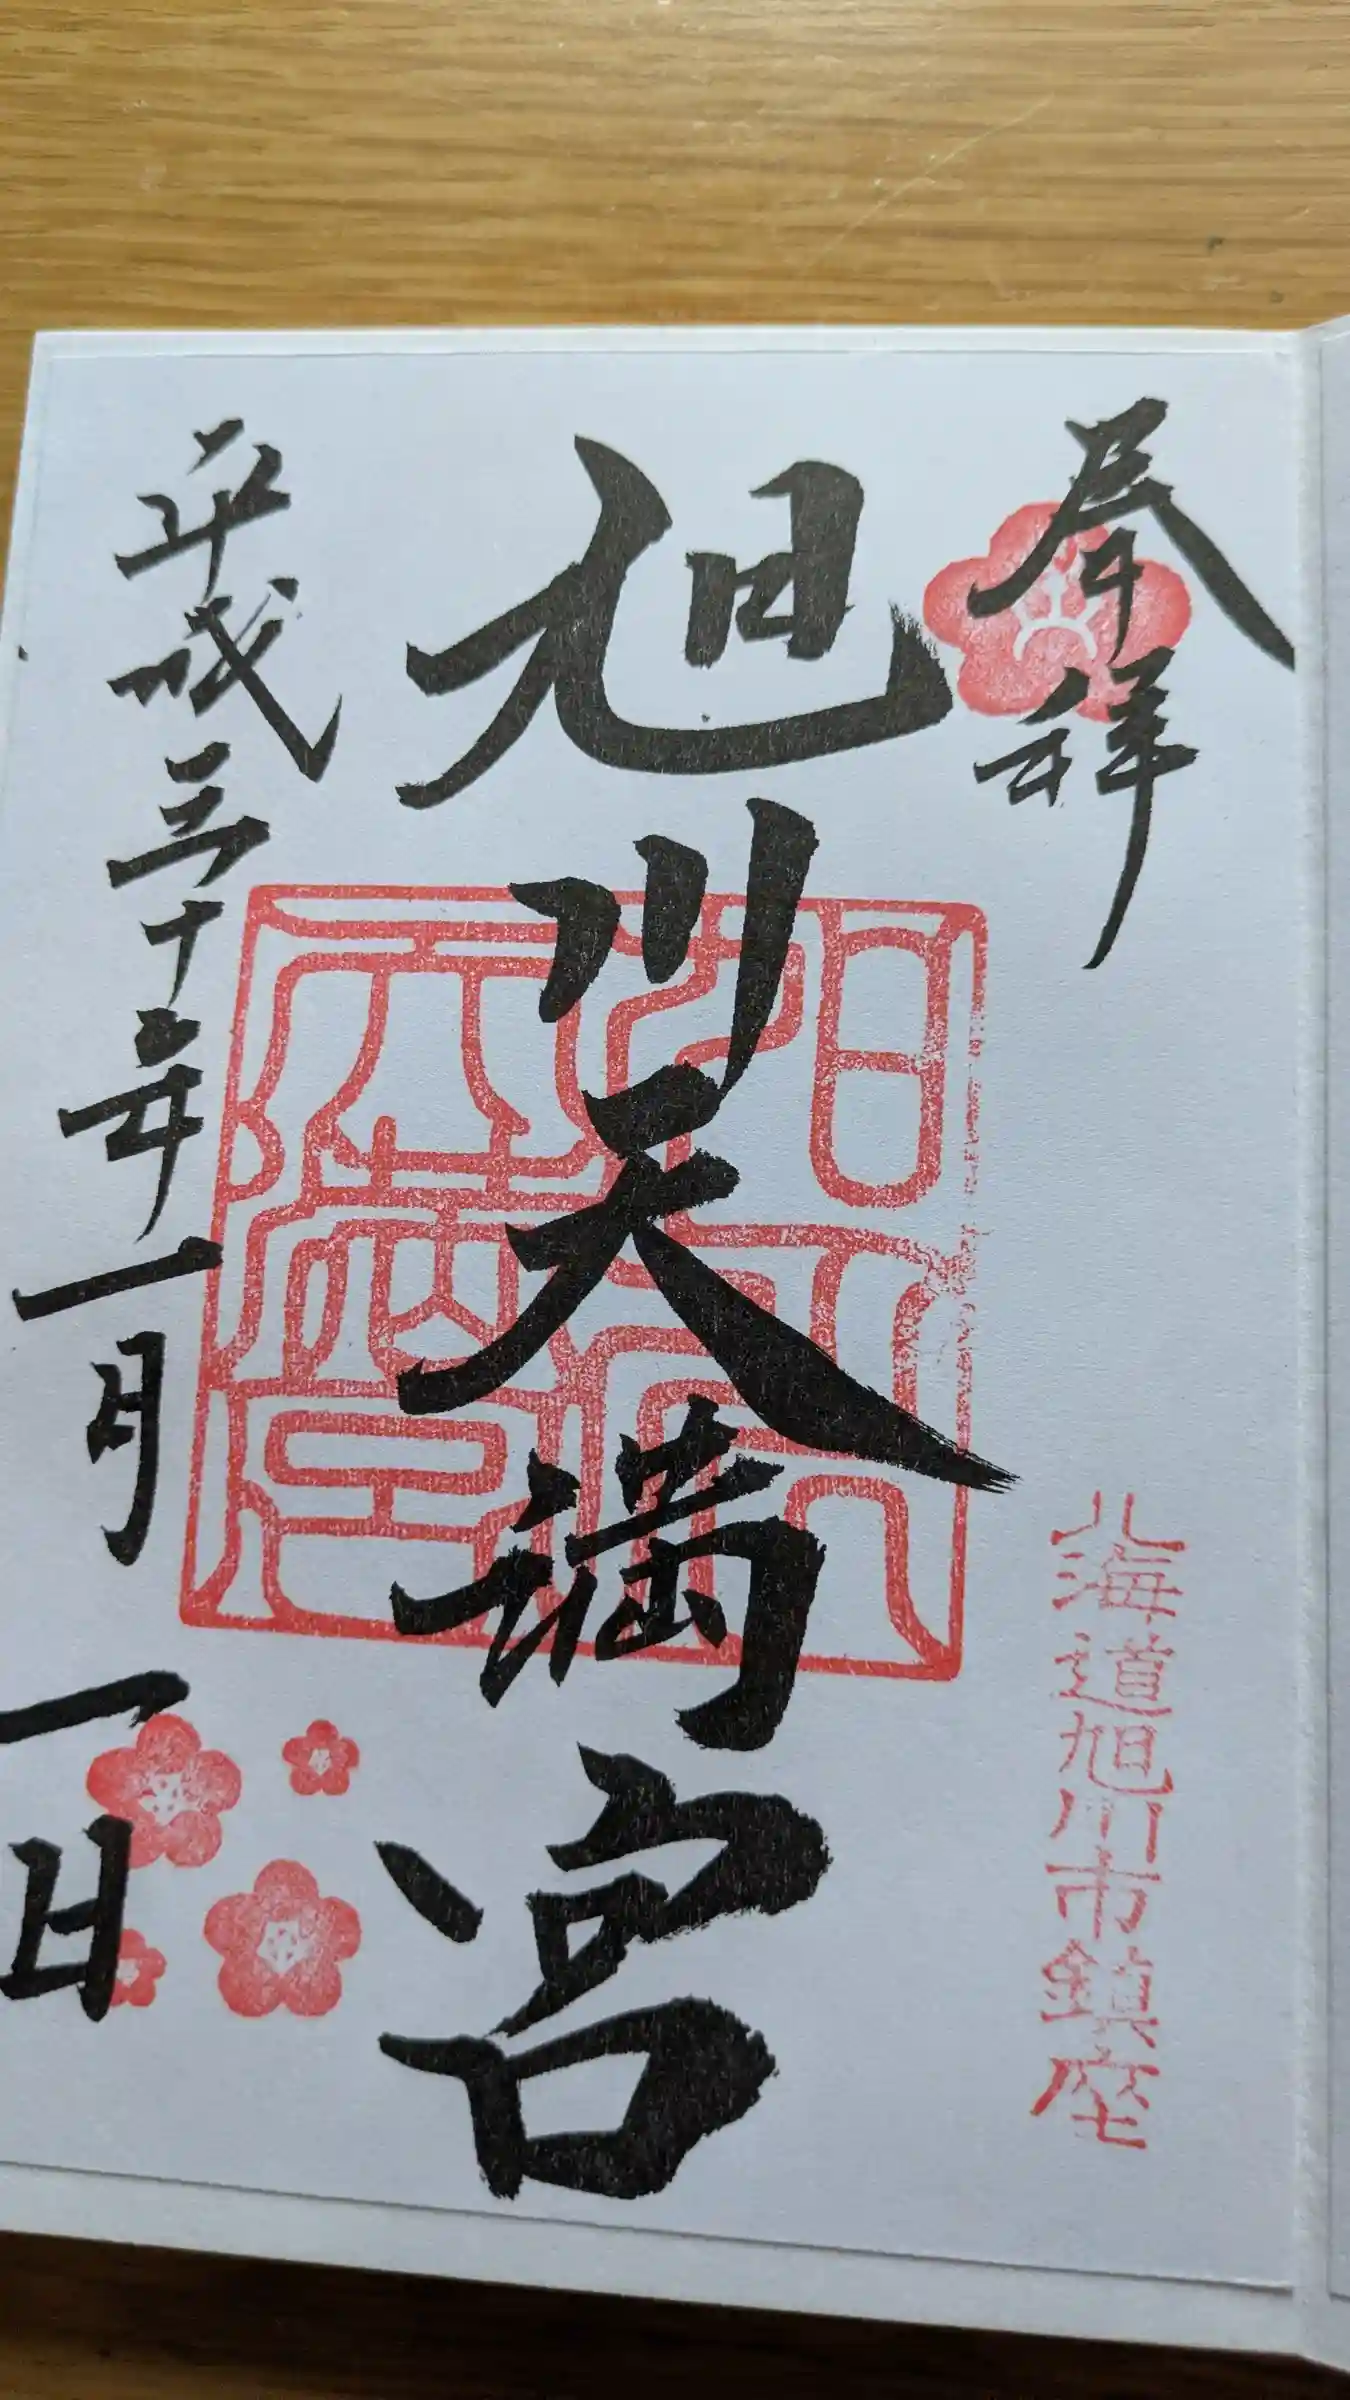 奉拝
北海道旭川市鎮座
旭川天満宮
旭川天満宮
平成三十年一月一日